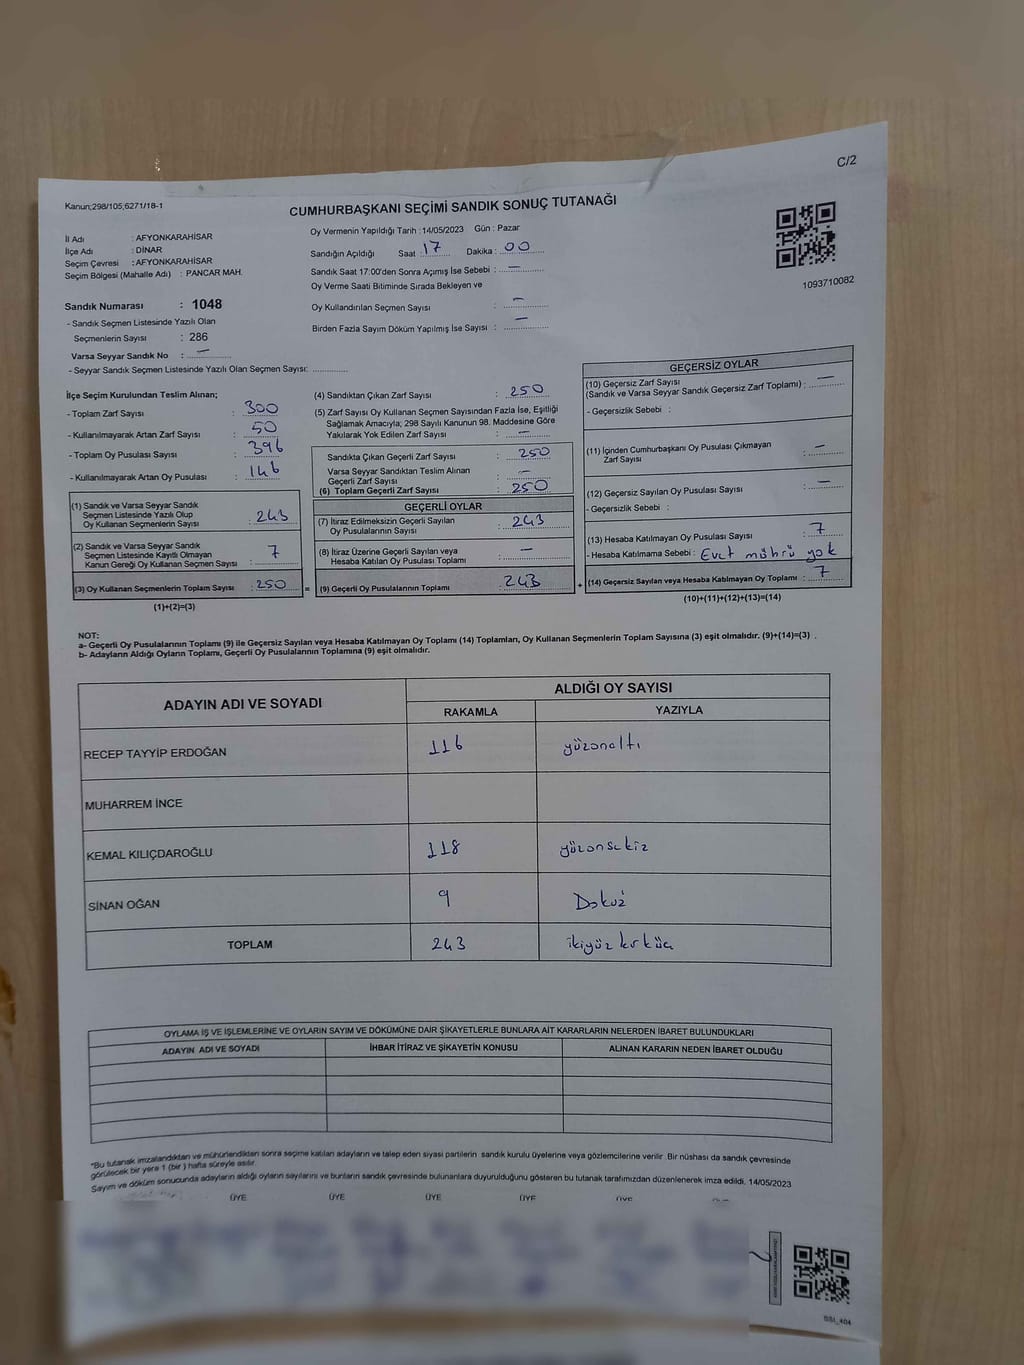 C/2
Kanun;298/105;6271/18-1
CUMHURBAŞKANI SEÇİMİ SANDIK SONUÇ TUTANAĞI
İl Adı : AFYONKARAHİSAR
İlçe Adı : DİNAR
Seçim Çevresi : AFYONKARAHİSAR
Seçim Bölgesi (Mahalle Adı) : PANCAR MAH.
Oy Vermenin Yapıldığı Tarih : 14/05/2023 Gün : Pazar
Sandığın Açıldığı Saat 17 Dakika : 00
Sandık Saat 17:00'den Sonra Açımış İse Sebebi : —
Oy Verme Saati Bitiminde Sırada Bekleyen ve
Oy Kullandırılan Seçmen Sayısı : —
Birden Fazla Sayım Döküm Yapılmış İse Sayısı : —
1093710082
Sandık Numarası : 1048
- Sandık Seçmen Listesinde Yazılı Olan
Seçmenlerin Sayısı : 286
Varsa Seyyar Sandık No : —
- Seyyar Sandık Seçmen Listesinde Yazılı Olan Seçmen Sayısı:
İlçe Seçim Kurulundan Teslim Alınan;
- Toplam Zarf Sayısı : 300
- Kullanılmayarak Artan Zarf Sayısı : 50
- Toplam Oy Pusulası Sayısı : 396
- Kullanılmayarak Artan Oy Pusulası : 146
(1) Sandık ve Varsa Seyyar Sandık
Seçmen Listesinde Yazılı Olup
Oy Kullanan Seçmenlerin Sayısı : 243
(2) Sandık ve Varsa Seyyar Sandık
Seçmen Listesinde Kayıtlı Olmayan
Kanun Gereği Oy Kullanan Seçmen Sayısı : 7
(3) Oy Kullanan Seçmenlerin Toplam Sayısı : 250
(1)+(2)=(3)
(4) Sandıktan Çıkan Zarf Sayısı : 250
(5) Zarf Sayısı Oy Kullanan Seçmen Sayısından Fazla İse, Eşitliği
Sağlamak Amacıyla; 298 Sayılı Kanunun 98. Maddesine Göre
Yakılarak Yok Edilen Zarf Sayısı : —
Sandıkta Çıkan Geçerli Zarf Sayısı : 250
Varsa Seyyar Sandıktan Teslim Alınan
Geçerli Zarf Sayısı : —
(6) Toplam Geçerli Zarf Sayısı : 250
GEÇERLİ OYLAR
(7) İtiraz Edilmeksizin Geçerli Sayılan
Oy Pusulalarının Sayısı : 243
(8) İtiraz Üzerine Geçerli Sayılan veya
Hesaba Katılan Oy Pusulası Toplamı : —
= (9) Geçerli Oy Pusulalarının Toplamı : 243
GEÇERSİZ OYLAR
(10) Geçersiz Zarf Sayısı
(Sandık ve Varsa Seyyar Sandık Geçersiz Zarf Toplamı) : —
- Geçersizlik Sebebi :
(11) İçinden Cumhurbaşkanı Oy Pusulası Çıkmayan
Zarf Sayısı : —
(12) Geçersiz Sayılan Oy Pusulası Sayısı : —
- Geçersizlik Sebebi :
(13) Hesaba Katılmayan Oy Pusulası Sayısı : 7
- Hesaba Katılmama Sebebi : Evet mührü yok
+ (14) Geçersiz Sayılan veya Hesaba Katılmayan Oy Toplamı : 7
(10)+(11)+(12)+(13)=(14)
NOT:
a- Geçerli Oy Pusulalarının Toplamı (9) ile Geçersiz Sayılan veya Hesaba Katılmayan Oy Toplamı (14) Toplamları, Oy Kullanan Seçmenlerin Toplam Sayısına (3) eşit olmalıdır. (9)+(14)=(3) .
b- Adayların Aldığı Oyların Toplamı, Geçerli Oy Pusulalarının Toplamına (9) eşit olmalıdır.
ADAYIN ADI VE SOYADI
ALDIĞI OY SAYISI
RAKAMLA YAZIYLA
RECEP TAYYİP ERDOĞAN 116 yüzonaltı
MUHARREM İNCE
KEMAL KILIÇDAROĞLU 118 yüzonsekiz
SİNAN OĞAN 9 Dokuz
TOPLAM 243 ikiyüzkırküç
OYLAMA İŞ VE İŞLEMLERİNE VE OYLARIN SAYIM VE DÖKÜMÜNE DAİR ŞİKAYETLERLE BUNLARA AİT KARARLARIN NELERDEN İBARET BULUNDUKLARI
ADAYIN ADI VE SOYADI İHBAR İTİRAZ VE ŞİKAYETİN KONUSU ALINAN KARARIN NEDEN İBARET OLDUĞU
*Bu tutanak imzalandıktan ve mühürlendikten sonra seçime katılan adayların ve talep eden siyasi partilerin sandık kurulu üyelerine veya gözlemcilerine verilir. Bir nüshası da sandık çevresinde
görülecek bir yere 1 (bir) hafta süreyle asılır.
Sayım ve döküm sonucunda adayların aldığı oyların sayılarını ve bunların sandık çevresinde bulunanlara duyurulduğunu gösteren bu tutanak tarafımızdan düzenlenerek imza edildi. 14/05/2023
ÜYE ÜYE ÜYE ÜYE ÜYE